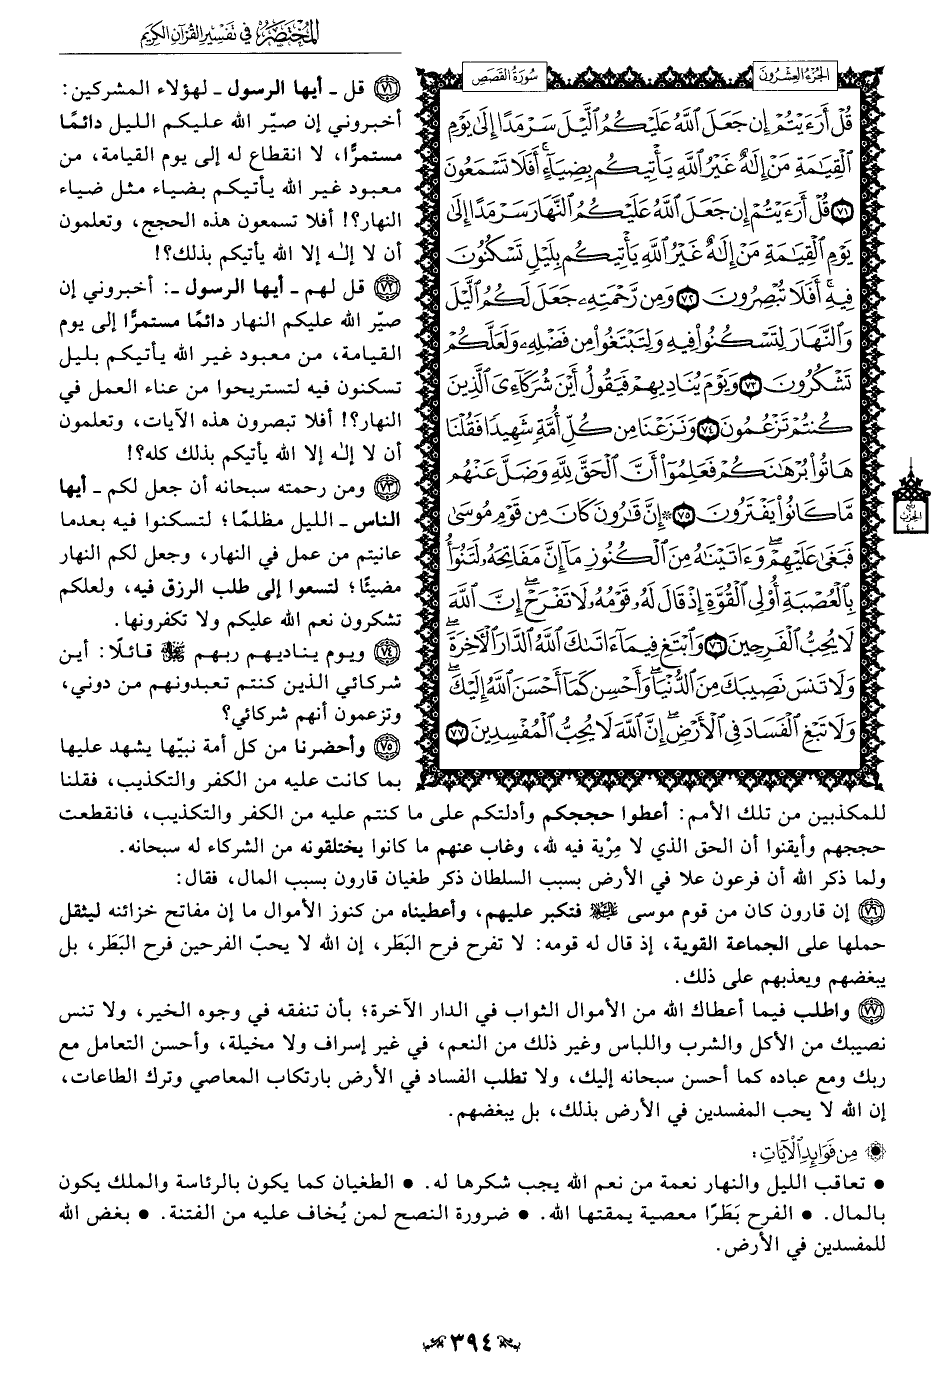 المختصر في تفسير القرآن الكريم
الجزء العشرون
سورة القصص
قُلْ أَرَءَيْتُمْ إِن جَعَلَ ٱللَّهُ عَلَيْكُمُ ٱلَّيْلَ سَرْمَدًا إِلَىٰ يَوْمِ
ٱلْقِيَٰمَةِ مَنْ إِلَٰهٌ غَيْرُ ٱللَّهِ يَأْتِيكُم بِضِيَآءٍ ۖ أَفَلَا تَسْمَعُونَ
٧١ قُلْ أَرَءَيْتُمْ إِن جَعَلَ ٱللَّهُ عَلَيْكُمُ ٱلنَّهَارَ سَرْمَدًا إِلَىٰ
يَوْمِ ٱلْقِيَٰمَةِ مَنْ إِلَٰهٌ غَيْرُ ٱللَّهِ يَأْتِيكُم بِلَيْلٍ تَسْكُنُونَ
فِيهِ ۖ أَفَلَا تُبْصِرُونَ ٧٢ وَمِن رَّحْمَتِهِۦ جَعَلَ لَكُمُ ٱلَّيْلَ
وَٱلنَّهَارَ لِتَسْكُنُوا۟ فِيهِ وَلِتَبْتَغُوا۟ مِن فَضْلِهِۦ وَلَعَلَّكُمْ
تَشْكُرُونَ ٧٣ وَيَوْمَ يُنَادِيهِمْ فَيَقُولُ أَيْنَ شُرَكَآءِىَ ٱلَّذِينَ
كُنتُمْ تَزْعُمُونَ ٧٤ وَنَزَعْنَا مِن كُلِّ أُمَّةٍ شَهِيدًا فَقُلْنَا
هَاتُوا۟ بُرْهَٰنَكُمْ فَعَلِمُوٓا۟ أَنَّ ٱلْحَقَّ لِلَّهِ وَضَلَّ عَنْهُم
مَّا كَانُوا۟ يَفْتَرُونَ ٧٥ ۞ إِنَّ قَٰرُونَ كَانَ مِن قَوْمِ مُوسَىٰ
فَبَغَىٰ عَلَيْهِمْ ۖ وَءَاتَيْنَٰهُ مِنَ ٱلْكُنُوزِ مَآ إِنَّ مَفَاتِحَهُۥ لَتَنُوٓأُ
بِٱلْعُصْبَةِ أُو۟لِى ٱلْقُوَّةِ إِذْ قَالَ لَهُۥ قَوْمُهُۥ لَا تَفْرَحْ ۖ إِنَّ ٱللَّهَ
لَا يُحِبُّ ٱلْفَرِحِينَ ٧٦ وَٱبْتَغِ فِيمَآ ءَاتَىٰكَ ٱللَّهُ ٱلدَّارَ ٱلْءَاخِرَةَ ۖ
وَلَا تَنسَ نَصِيبَكَ مِنَ ٱلدُّنْيَا ۖ وَأَحْسِن كَمَآ أَحْسَنَ ٱللَّهُ إِلَيْكَ ۖ
وَلَا تَبْغِ ٱلْفَسَادَ فِى ٱلْأَرْضِ ۖ إِنَّ ٱللَّهَ لَا يُحِبُّ ٱلْمُفْسِدِينَ ٧٧
الحزب
٤٠
٧١ قل ـ أيها الرسول ـ لهؤلاء المشركين:
أخبروني إن صيّر الله عليكم الليل دائمًا
مستمرًّا، لا انقطاع له إلى يوم القيامة، من
معبود غير الله يأتيكم بضياء مثل ضياء
النهار؟! أفلا تسمعون هذه الحجج، وتعلمون
أن لا إلٰه إلا الله يأتيكم بذلك؟!
٧٢ قل لهم ـ أيها الرسول ـ: أخبروني إن
صيّر الله عليكم النهار دائمًا مستمرًّا إلى يوم
القيامة، من معبود غير الله يأتيكم بليل
تسكنون فيه لتستريحوا من عناء العمل في
النهار؟! أفلا تبصرون هذه الآيات، وتعلمون
أن لا إلٰه إلا الله يأتيكم بذلك كله؟!
٧٣ ومن رحمته سبحانه أن جعل لكم ـ أيها
الناس ـ الليل مظلمًا؛ لتسكنوا فيه بعدما
عانيتم من عمل في النهار، وجعل لكم النهار
مضيئًا؛ لتسعوا إلى طلب الرزق فيه، ولعلكم
تشكرون نعم الله عليكم ولا تكفرونها.
٧٤ ويوم يناديهم ربهم ﷻ قائلًا: أين
شركائي الذين كنتم تعبدونهم من دوني،
وتزعمون أنهم شركائي؟
٧٥ وأحضرنا من كل أمة نبيّها يشهد عليها
بما كانت عليه من الكفر والتكذيب، فقلنا
للمكذبين من تلك الأمم: أعطوا حججكم وأدلتكم على ما كنتم عليه من الكفر والتكذيب، فانقطعت
حججهم وأيقنوا أن الحق الذي لا مِرْية فيه لله، وغاب عنهم ما كانوا يختلقونه من الشركاء له سبحانه.
ولما ذكر الله أن فرعون علا في الأرض بسبب السلطان ذكر طغيان قارون بسبب المال، فقال:
٧٦ إن قارون كان من قوم موسى عليه السلام فتكبر عليهم، وأعطيناه من كنوز الأموال ما إن مفاتح خزائنه ليثقل
حملها على الجماعة القوية، إذ قال له قومه: لا تفرح فرح البَطَر، إن الله لا يحبّ الفرحين فرح البَطَر، بل
يبغضهم ويعذبهم على ذلك.
٧٧ واطلب فيما أعطاك الله من الأموال الثواب في الدار الآخرة؛ بأن تنفقه في وجوه الخير، ولا تنس
نصيبك من الأكل والشرب واللباس وغير ذلك من النعم، في غير إسراف ولا مخيلة، وأحسن التعامل مع
ربك ومع عباده كما أحسن سبحانه إليك، ولا تطلب الفساد في الأرض بارتكاب المعاصي وترك الطاعات،
إن الله لا يحب المفسدين في الأرض بذلك، بل يبغضهم.
مِن فَوَائِدِ الآيَاتِ:
• تعاقب الليل والنهار نعمة من نعم الله يجب شكرها له. • الطغيان كما يكون بالرئاسة والملك يكون
بالمال. • الفرح بَطَرًا معصية يمقتها الله. • ضرورة النصح لمن يُخاف عليه من الفتنة. • بغض الله
للمفسدين في الأرض.
٣٩٤